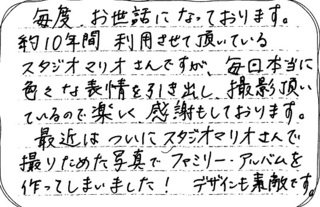 毎度、お世話になっております。
約10年間 利用させて頂いている
スタジオマリオさんですが、毎回本当に
色々な表情を引き出し、撮影頂い
ているので楽しく 感謝もしております。
最近は ついにスタジオマリオさんで
撮りためた写真で ファミリー・アルバムを
作ってしまいました! デザインも素敵です。